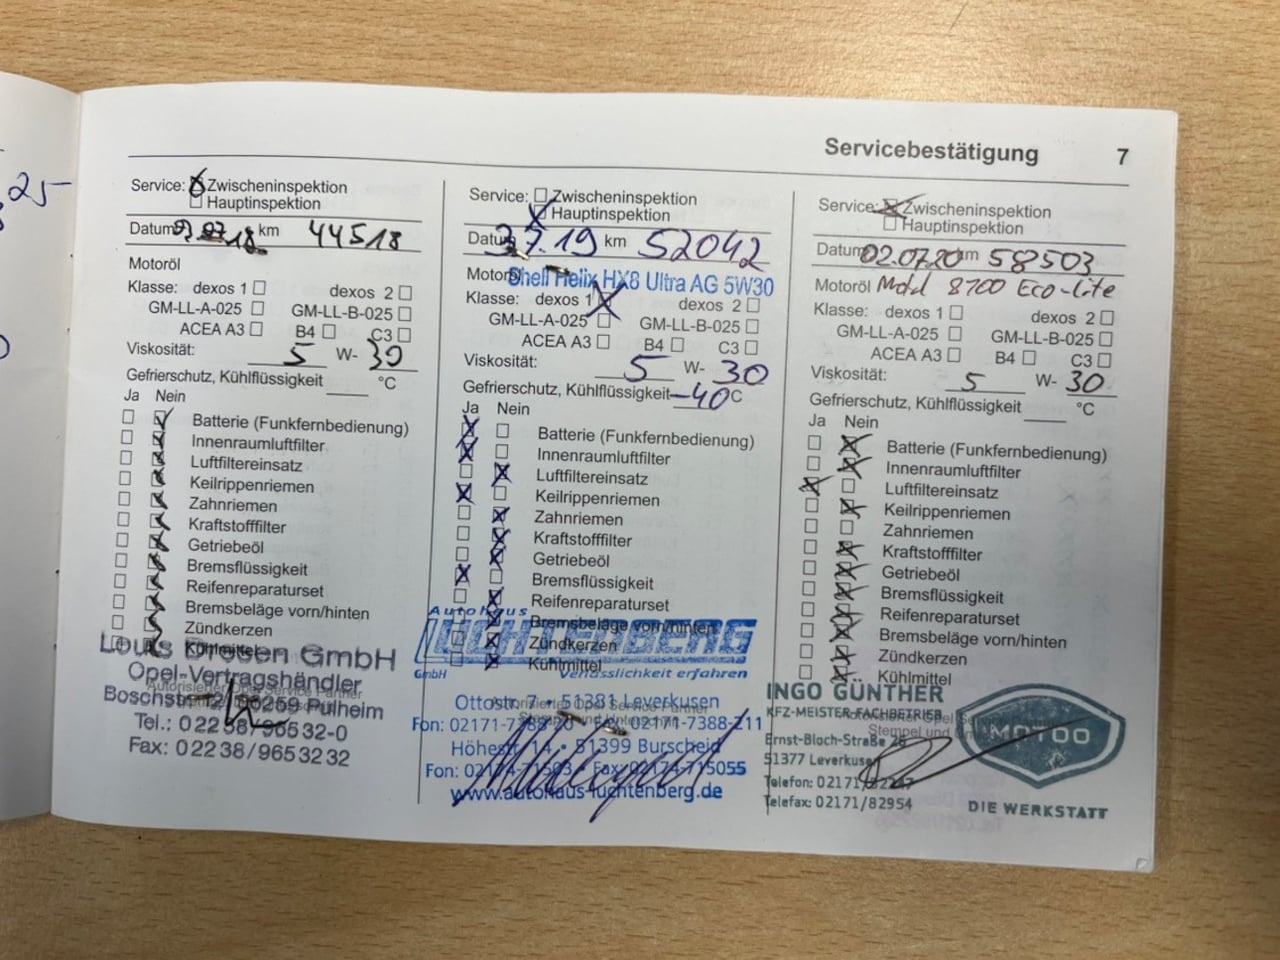 25
Servicebestätigung 7
Service: Zwischeninspektion
Hauptinspektion
Datum 18 km 44518
Motoröl
Klasse: dexos 1 dexos 2
GM-LL-A-025 GM-LL-B-025
ACEA A3 B4 C3
Viskosität: 5 W- 30
Gefrierschutz, Kühlflüssigkeit °C
Ja Nein
Batterie (Funkfernbedienung)
Innenraumluftfilter
Luftfiltereinsatz
Keilrippenriemen
Zahnriemen
Kraftstofffilter
Getriebeöl
Bremsflüssigkeit
Reifenreparaturset
Bremsbeläge vorn/hinten
Zündkerzen
Kühlmittel
Louis Dresen GmbH
Opel-Vertragshändler
Pulheim
Tel.:
Fax: 0 22 38 / 965 32 32
Service: Zwischeninspektion
Hauptinspektion
Datum 3.7.19 km 52042
Motoröl Shell Helix HX8 Ultra AG 5W30
Klasse: dexos 1 dexos 2
GM-LL-A-025 GM-LL-B-025
ACEA A3 B4 C3
Viskosität: 5 W- 30
Gefrierschutz, Kühlflüssigkeit -40°C
Ja Nein
Batterie (Funkfernbedienung)
Innenraumluftfilter
Luftfiltereinsatz
Keilrippenriemen
Zahnriemen
Kraftstofffilter
Getriebeöl
Bremsflüssigkeit
Reifenreparaturset
Bremsbeläge vorn/hinten
Zündkerzen
Kühlmittel
Autohaus
LUCHTENBERG
GmbH Verlässlichkeit erfahren
Ottostr. 7 • 51381 Leverkusen
Fon: 02171-7388-211
Höhestr. 14 • 51399 Burscheid
Fon: Fax: 02174-715055
www.autohaus-luchtenberg.de
Service: Zwischeninspektion
Hauptinspektion
Datum 02.07.20 km 58503
Motoröl Motul 8100 Eco-lite
Klasse: dexos 1 dexos 2
GM-LL-A-025 GM-LL-B-025
ACEA A3 B4 C3
Viskosität: 5 W- 30
Gefrierschutz, Kühlflüssigkeit °C
Ja Nein
Batterie (Funkfernbedienung)
Innenraumluftfilter
Luftfiltereinsatz
Keilrippenriemen
Zahnriemen
Kraftstofffilter
Getriebeöl
Bremsflüssigkeit
Reifenreparaturset
Bremsbeläge vorn/hinten
Zündkerzen
Kühlmittel
INGO GÜNTHER
KFZ-MEISTER-FACHBETRIEB
Ernst-Bloch-Straße
51377 Leverkusen
Telefon: 02171/
Telefax: 02171/82954
MOTOO
DIE WERKSTATT